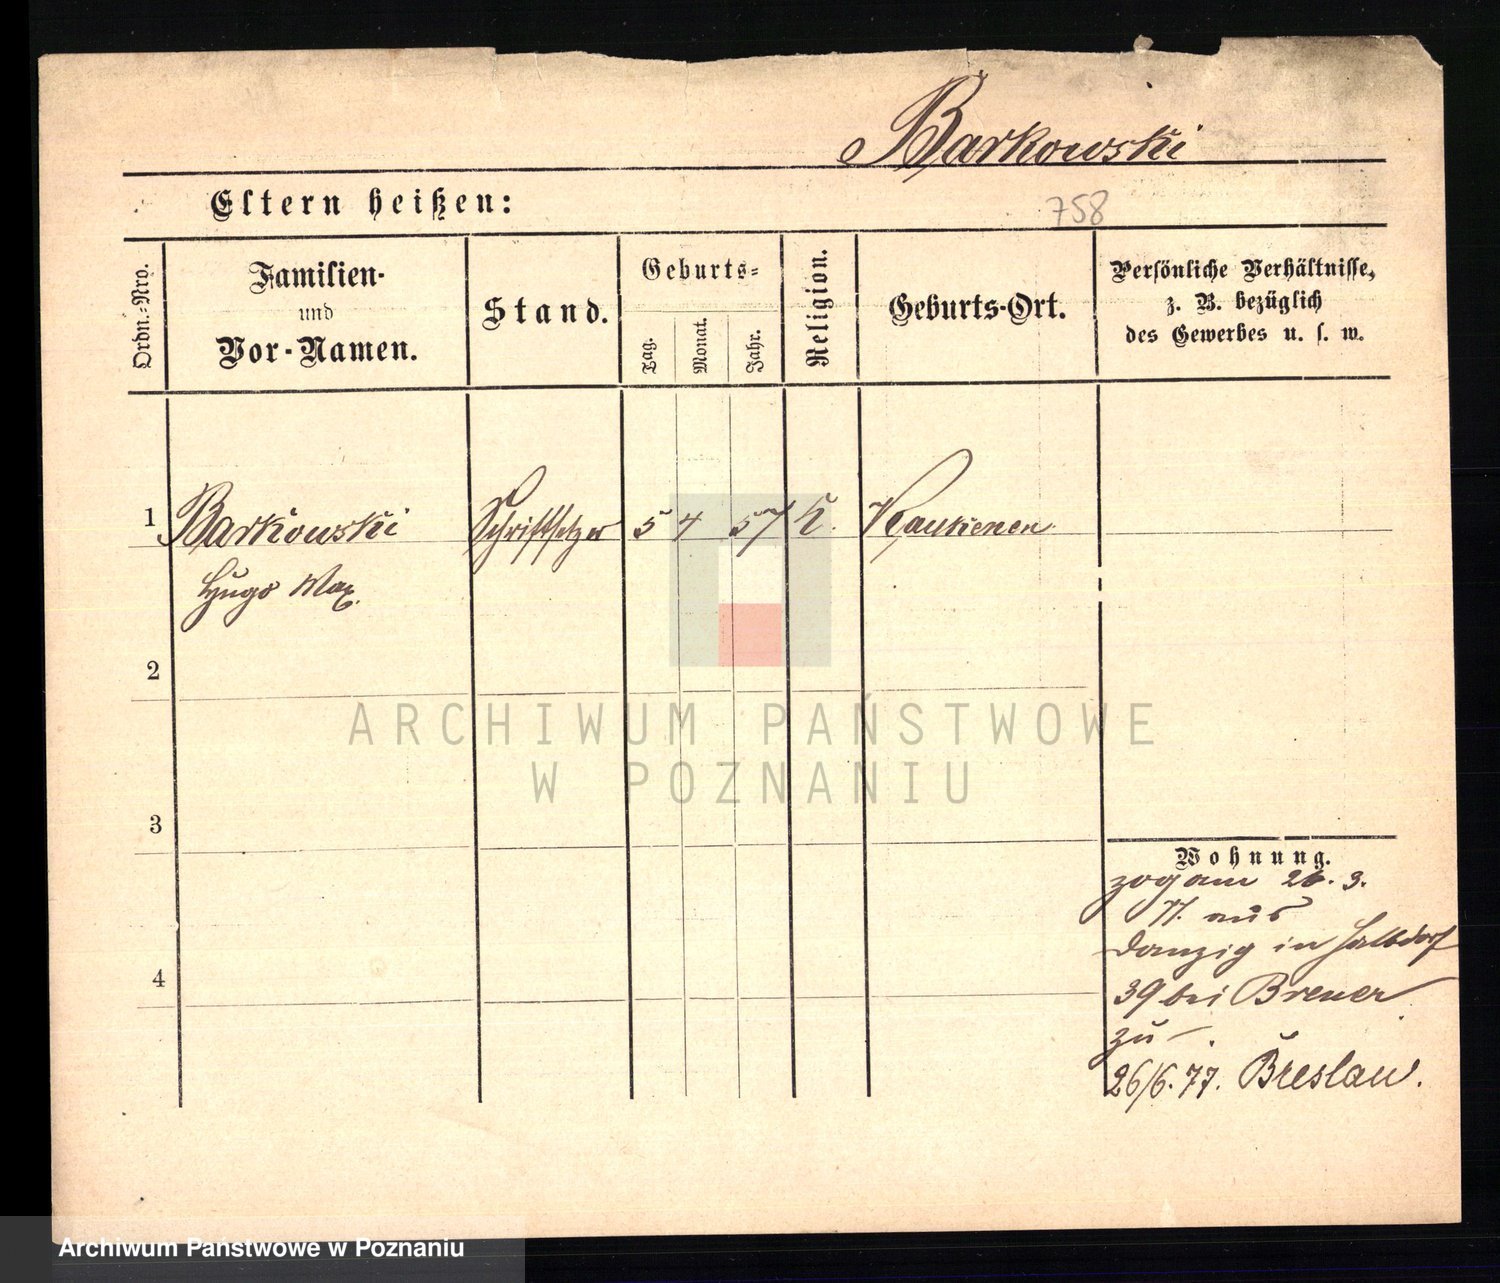 Barkowski
Eltern heißen:
758
Ordn.-Nro.
Familien-
und
Vor-Namen.
Stand.
Geburts-
Tag.
Monat.
Jahr.
Religion.
Geburts-Ort.
Persönliche Verhältnisse,
z. B. bezüglich
des Gewerbes u. s. w.
1 Barkowski Schriftsetzer 5 4 57 k. Kaukienen
Hugo Max.
2
ARCHIWUM PAŃSTWOWE
W POZNANIU
3
Wohnung.
zog am 26. 3.
77. aus
Danzig in Halbdorf
4
39 bei Brener
zu
26/6. 77. Breslau.
Archiwum Państwowe w Poznaniu